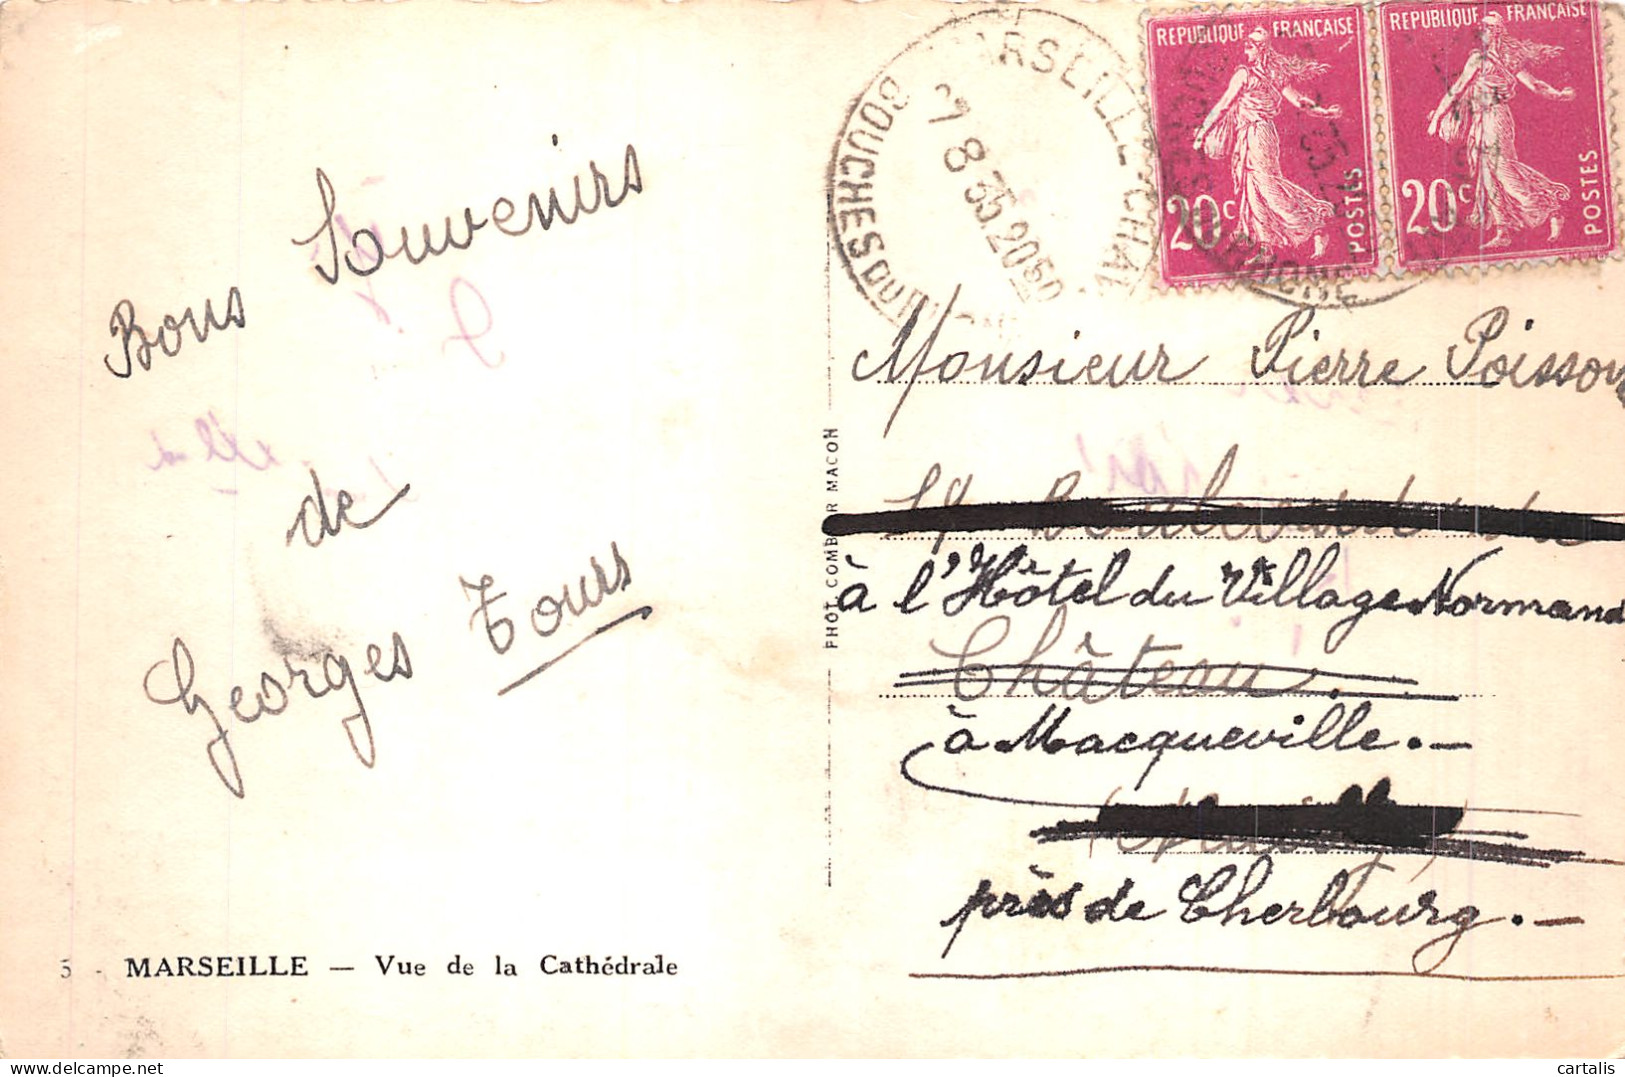 Bons Souvenirs
de
Georges Tours
5 - MARSEILLE — Vue de la Cathédrale
PHOT COMBIER MACON
MARSEILLE-CHAVE
8 35. 20 50
BOUCHES DU RHONE
REPUBLIQUE FRANÇAISE
20c
POSTES
REPUBLIQUE FRANÇAISE
20c
POSTES
Monsieur Pierre Poisson
à l'Hôtel du Village Normand
Château.
à Macqueville.—
près de Cherbourg.—
cartalis